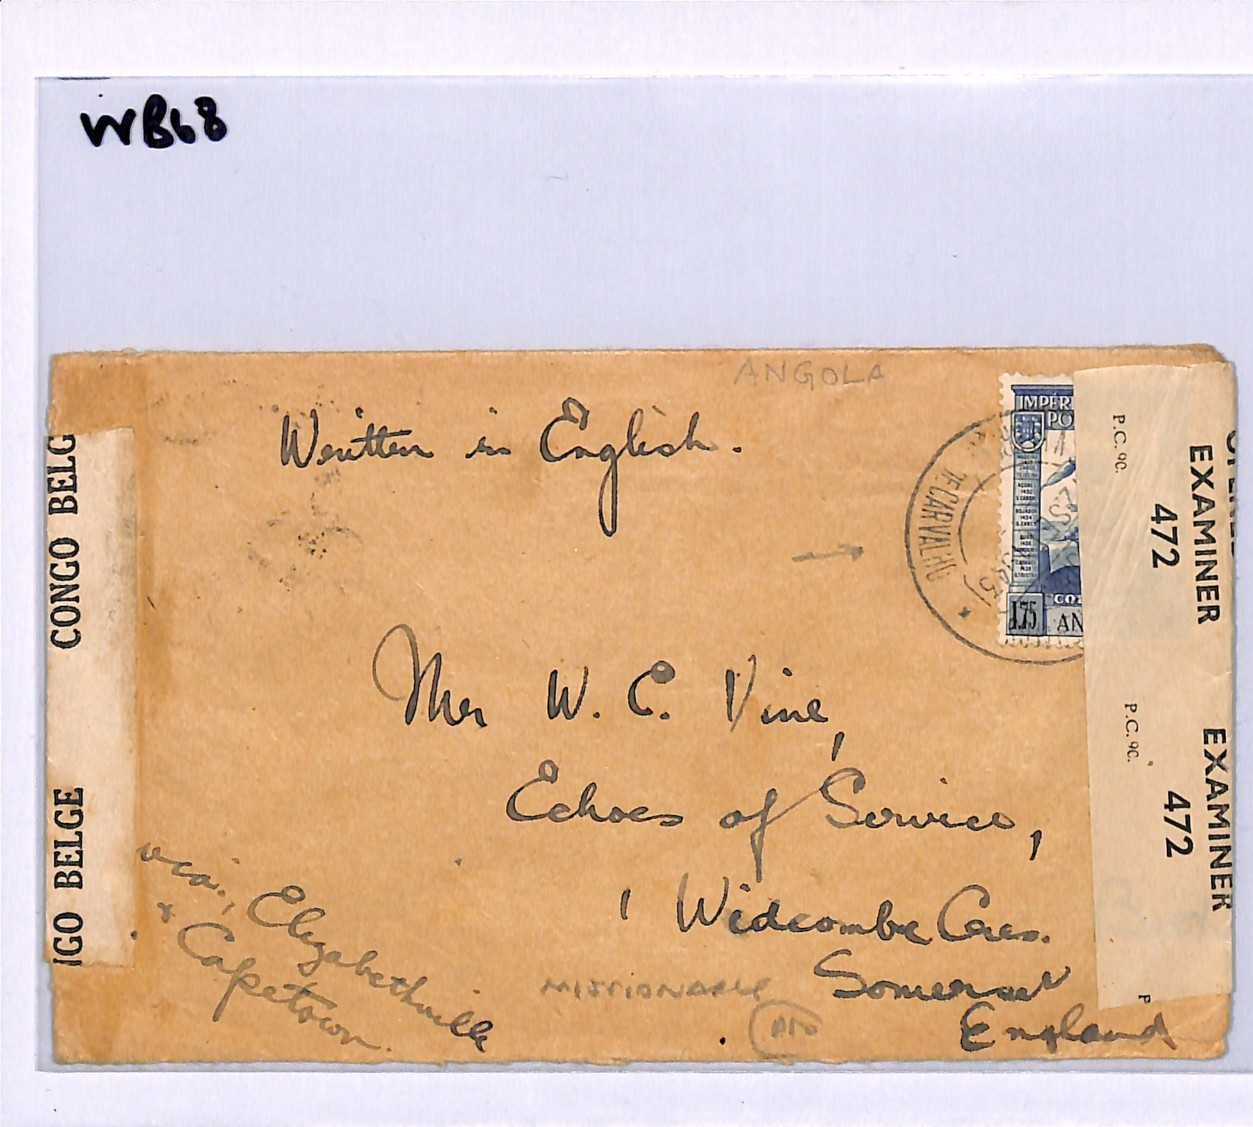 WB68
ANGOLA
Written in English.
IMPÉR
PO
DE CARVALHO
1.75 AN
Mr W. E. Vine,
Echoes of Service,
1 Widcombe Cres.
Somerset
England
via, Elizabethville
& Capetown.
MISSIONARY
PTO
CONGO BELG
NGO BELGE
P.C. 90.
EXAMINER
472
P.C. 90.
EXAMINER
472
P